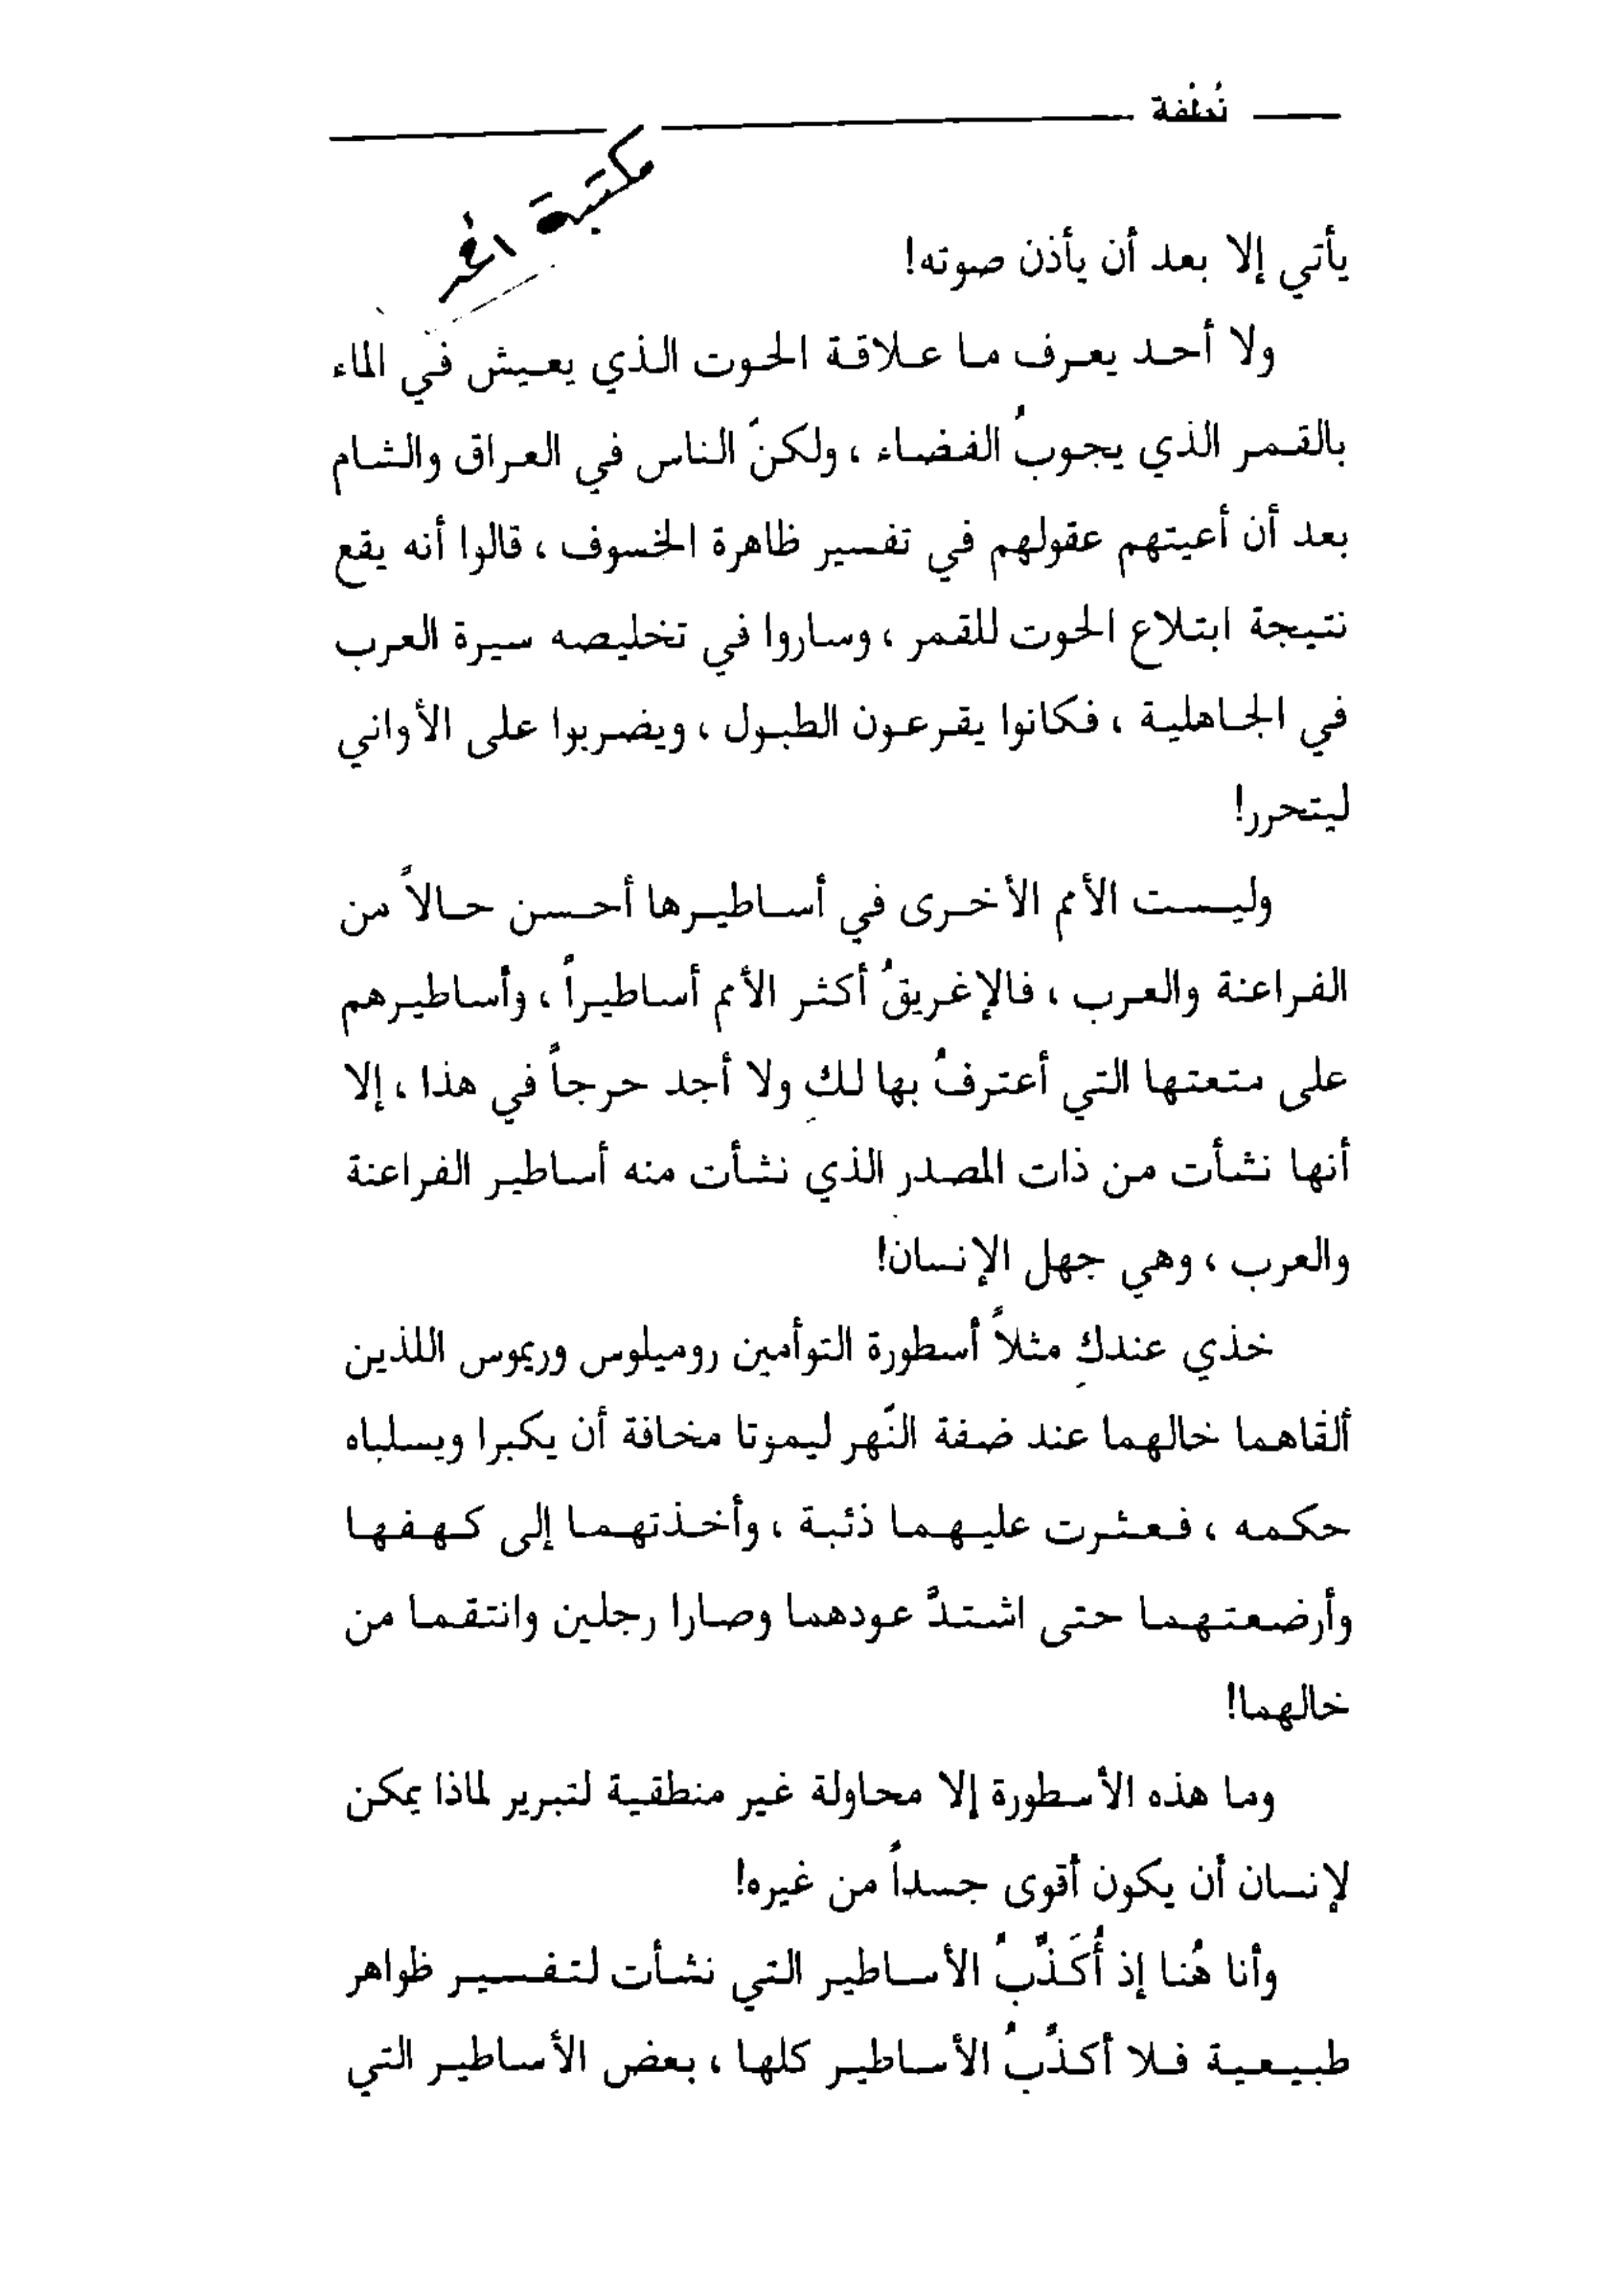 نُطْفة
يأتي إلا بعد أن يأذن صوته!
ولا أحد يعرف ما علاقة الحوت الذي يعيش في الماء
بالقمر الذي يجوبُ الفضاء ، ولكنّ الناس في العراق والشام
بعد أن أعيتهم عقولهم في تفسير ظاهرة الخسوف ، قالوا أنه يقع
نتيجة ابتلاع الحوت للقمر ، وساروا في تخليصه سيرة العرب
في الجاهلية ، فكانوا يقرعون الطبول ، ويضربوا على الأواني
ليتحرر!
وليست الأمم الأخرى في أساطيرها أحسن حالاً من
الفراعنة والعرب ، فالإغريقُ أكثر الأمم أساطيراً ، وأساطيرهم
على متعتها التي أعترفُ بها لكِ ولا أجد حرجاً في هذا ، إلا
أنها نشأت من ذات المصدر الذي نشأت منه أساطير الفراعنة
والعرب ، وهي جهل الإنسان!
خذي عندكِ مثلاً أسطورة التوأمين روميلوس وريموس اللذين
ألقاهما خالهما عند ضفة النّهر ليموتا مخافة أن يكبرا ويسلباه
حكمه ، فعثرت عليهما ذئبة ، وأخذتهما إلى كهفها
وأرضعتهما حتى اشتدَّ عودهما وصارا رجلين وانتقما من
خالهما!
وما هذه الأسطورة إلا محاولة غير منطقية لتبرير لماذا يمكن
لإنسان أن يكون أقوى جسداً من غيره!
وأنا هُنا إذ أُكَذِّبُ الأساطير التي نشأت لتفسير ظواهر
طبيعية فلا أكذّبُ الأساطير كلها ، بعض الأساطير التي
مكتبة